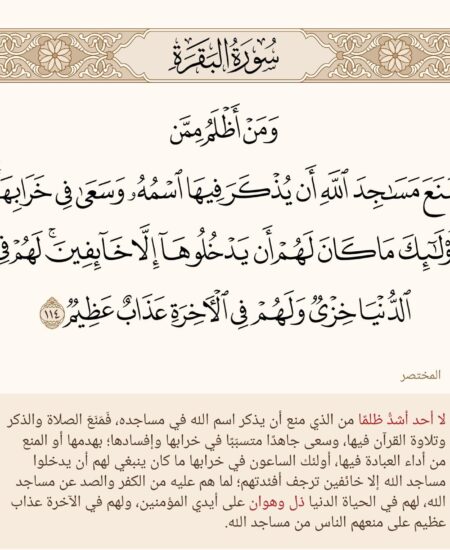 سُورَةُ البَقَرَةِ
وَمَنْ أَظْلَمُ مِمَّن
مَّنَعَ مَسَٰجِدَ ٱللَّهِ أَن يُذْكَرَ فِيهَا ٱسْمُهُۥ وَسَعَىٰ فِي خَرَابِهَآ
أُوْلَٰٓئِكَ مَا كَانَ لَهُمْ أَن يَدْخُلُوهَآ إِلَّا خَآئِفِينَۚ لَهُمْ فِي
ٱلدُّنْيَا خِزْيٌ وَلَهُمْ فِي ٱلْأٓخِرَةِ عَذَابٌ عَظِيمٌ ١١٤
المختصر
لا أحد أشدُّ ظلمًا من الذي منع أن يذكر اسم الله في مساجده، فَمَنَعَ الصلاة والذكر
وتلاوة القرآن فيها، وسعى جاهدًا متسببًا في خرابها وإفسادها؛ بهدمها أو المنع
من أداء العبادة فيها، أولئك الساعون في خرابها ما كان ينبغي لهم أن يدخلوا
مساجد الله إلا خائفين ترجف أفئدتهم؛ لما هم عليه من الكفر والصد عن مساجد
الله، لهم في الحياة الدنيا ذل وهوان على أيدي المؤمنين، ولهم في الآخرة عذاب
عظيم على منعهم الناس من مساجد الله.